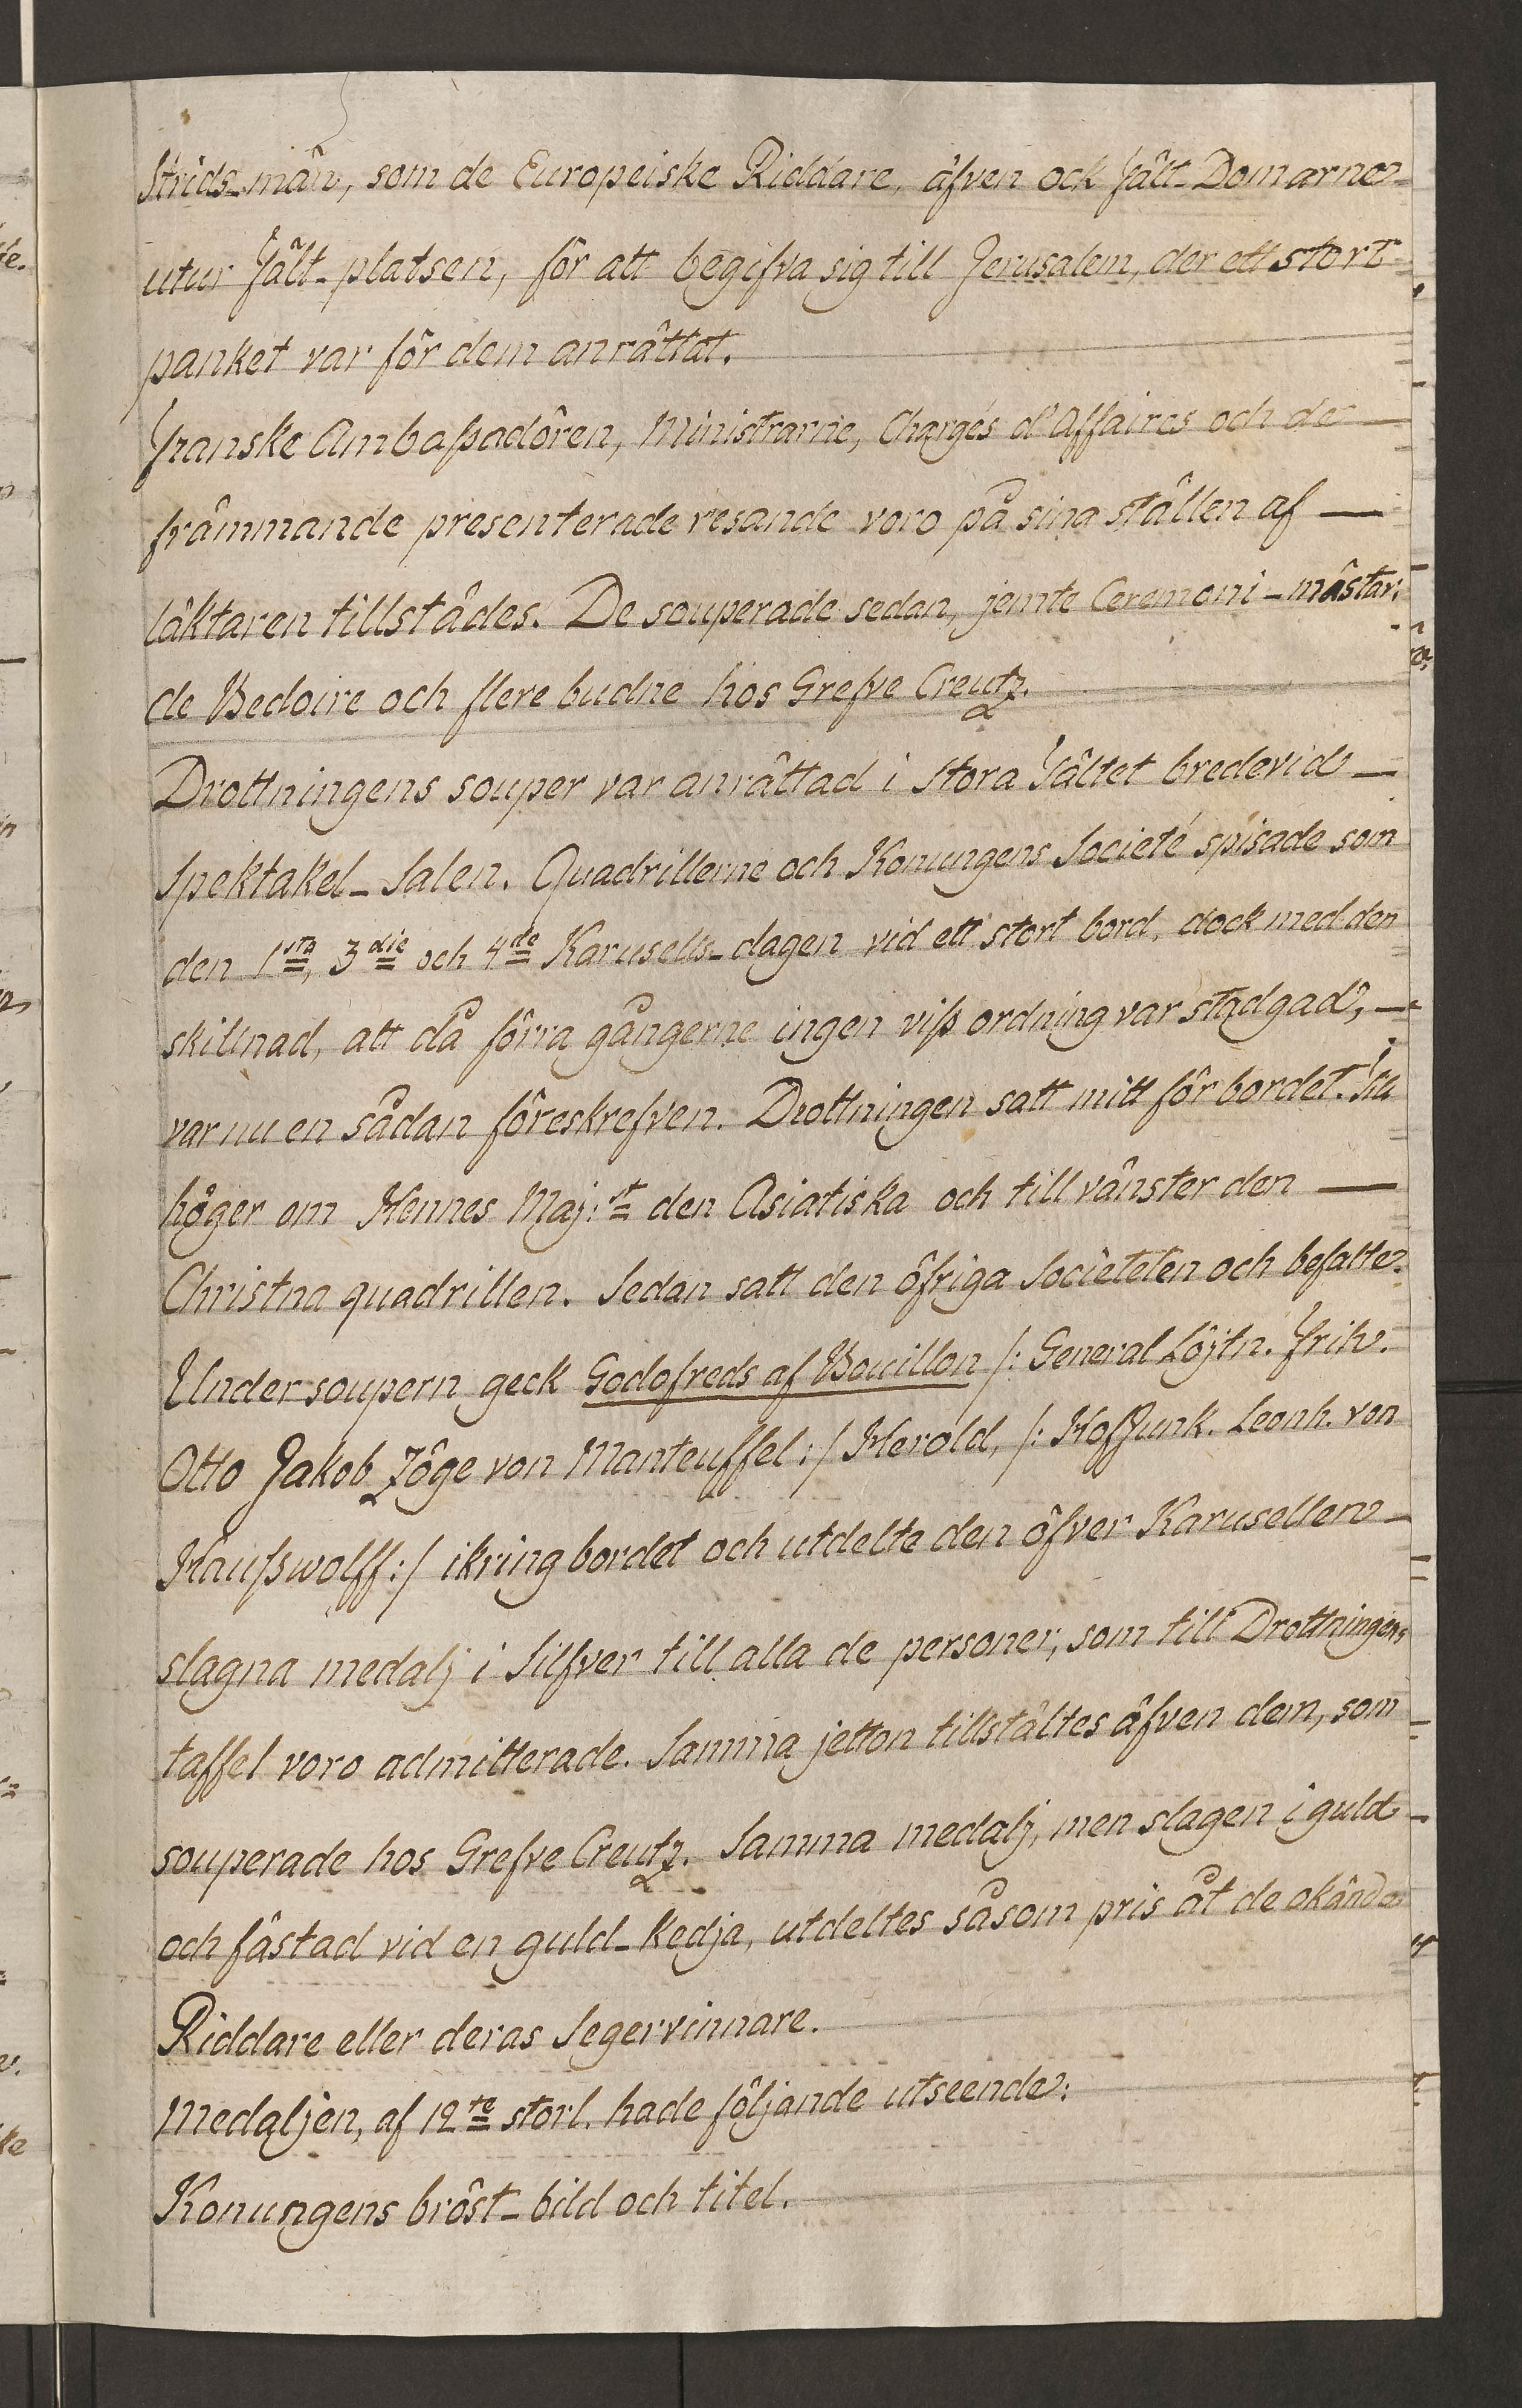 Strids-män, som de Europeiske Riddare, äfven ock Fält-Domarne
utur Fält-platsen, för att begifva sig till Jerusalem, der ett stort
panket var för dem anrättat.
Franske Ambaßadören, Ministrarne, Chargés d'Affaires och de
främmande presenterade resande voro på sina ställen af —
läktaren tillstädes. De souperade sedan, jemte Ceremoni-mästar:
de Bedoire och flere budne hos Grefve Creutz.
Drottningens souper var anrättad i stora Tältet bredevid —
Spektakel-Salen. Quadrillerne och Konungens Societé spisade som
den 1sta, 3die och 4de Karusells-dagen vid ett stort bord, dock med den
skillnad, att då förra gångerne ingen viß ordning var stadgad, —
var nu en sådan föreskrefven. Drottningen satt mitt för bordet. Till
höger om Hennes Maj:st den Asiatiska och till vänster den —
Christna quadrillen. Sedan satt den öfriga Societeten och befalte.
Under soupern geck Godofreds af Bouillon /: General Löjtn. Frih.
Otto Jakob Zöge von Manteuffel :/ Herold, /: HofJunk. Leonh. von
Haußwolff :/ ikring bordet och utdelte den öfver Karusellen —
slagna medalj i Silfver till alla de personer, som till Drottningens
taffel voro admitterade. Samma jetton tillstältes äfven dem, som
souperade hos Grefve Creutz. Samma medalj, men slagen i guld —
och fästad vid en guld-kedja, utdeltes såsom pris åt de okände
Riddare eller deras Segervinnare.
Medaljen, af 12te storl. hade följande utseende:
Konungens bröst-bild och titel.